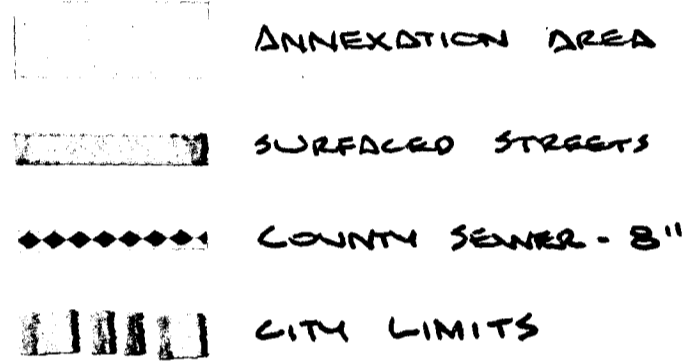 ANNEXATION AREA
SURFACED STREETS
COUNTY SEWER - 8"
CITY LIMITS